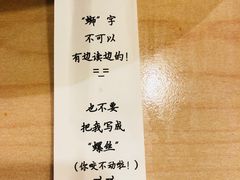 “蛳”字
不可以
有边读边的！
=_=
也不要
把我写成
“螺丝”
（你咬不动啦！）